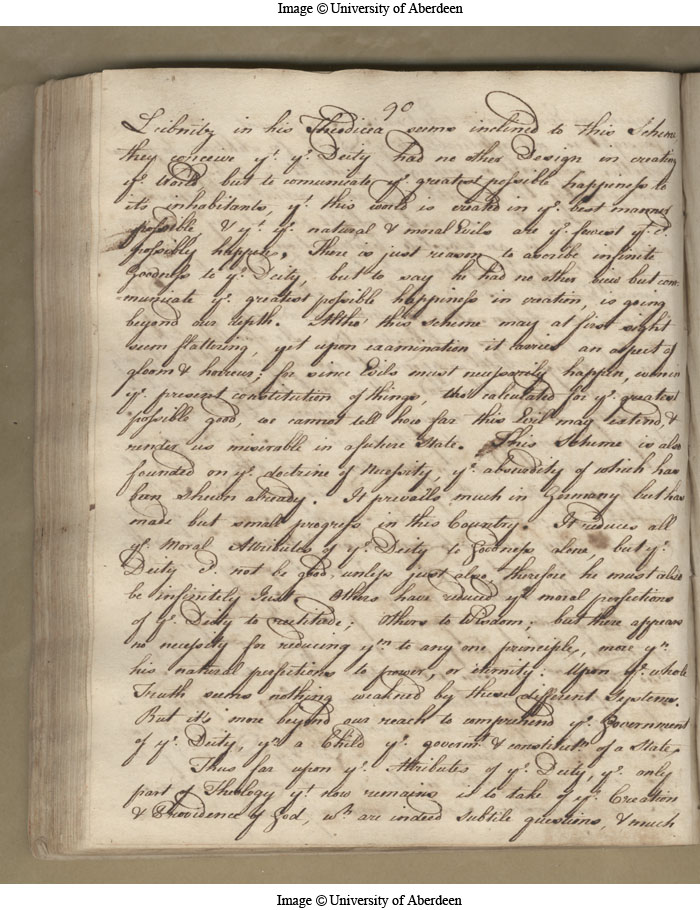 Image © University of Aberdeen
90
Leibnitz in his Theodicea seems inclined to this Scheme
they conceive yt. ye. Deity had no other Design in creating
ye. World but to comunicate ye. greatest possible happiness to
its inhabitants, yt. this world is created in ye. best manner
possible, & yt. ye. natural & moral Evils are ye. fewest yt. c.
possibly happen. There is just reason to ascribe infinite
Goodness to ye. Deity, but to say he had no other view but com-
-municate ye. greatest possible happiness in creation, is going
beyond our depth. Altho' this scheme may at first sight
seem flattering, yet upon examination it carries an aspect of
gloom & horrour; for since Evils must necessarily happen, even in
ye. present constitution of things, tho' calculated for ye. greatest
possible good, we cannot tell how far this Evil may extend, &
render us miserable in a future State. This Scheme is also
founded on ye. doctrine of Necessity, ye. absurdity of which has
been shewn already. It prevails much in Germany but has
made but small progress in this Country. It reduces all
ye. Moral Attributes of ye. Deity to Goodness alone, but ye.
Deity cd. not be good, unless just also, therefore he must also
be infinitely Just. Others have reduced ye. moral perfections
of ye. Deity to rectitude; others to Wisdom; but there appears
no necessity for reducing ym. to any one principle, more yn.
his natural perfections to power, or eternity. Upon ye. whole
Truth seems nothing weakned by these different Systems.
But it's more beyond our reach to comprehend ye. Government
of ye. Deity, yn. a Child ye. governmt. & constitutn. of a State.
Thus far upon ye. Attributes of ye. Deity, ye. only
part of Theology yt. now remains is to take of ye. Creation
& Providence of God, wh. are indeed subtile questions, & much
Image © University of Aberdeen